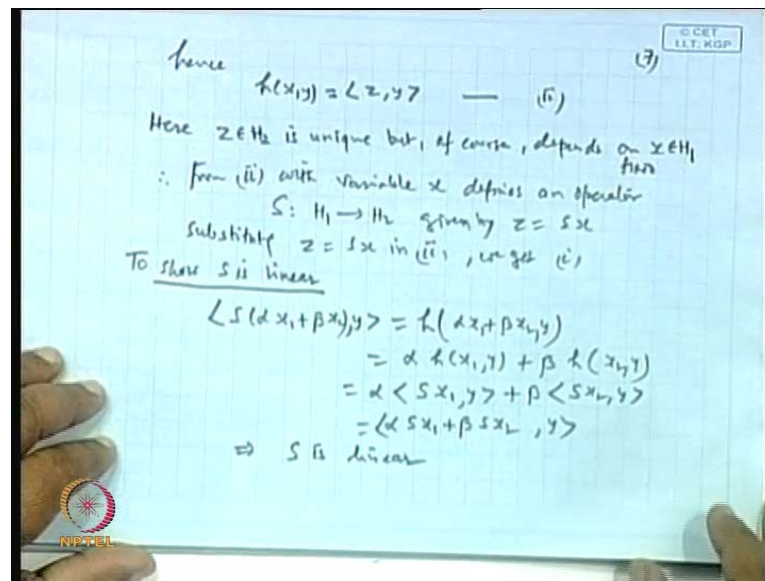 © CET
I.I.T. KGP
(7)
hence
h(x,y) = <z,y> — (ii)
Here z∈H₂ is unique but, of course, depends on x∈H₁
∴ From (ii) with variable x defines an operator
S: H₁ → H₂ given by z = Sx
Substitute z = Sx in (ii), we get (i)
To show S is linear
<S(αx₁+βx₂),y> = h(αx₁+βx₂,y)
= α h(x₁,y) + β h(x₂,y)
= α <Sx₁,y> + β <Sx₂,y>
= <αSx₁+βSx₂, y>
⇒ S is linear
NPTEL